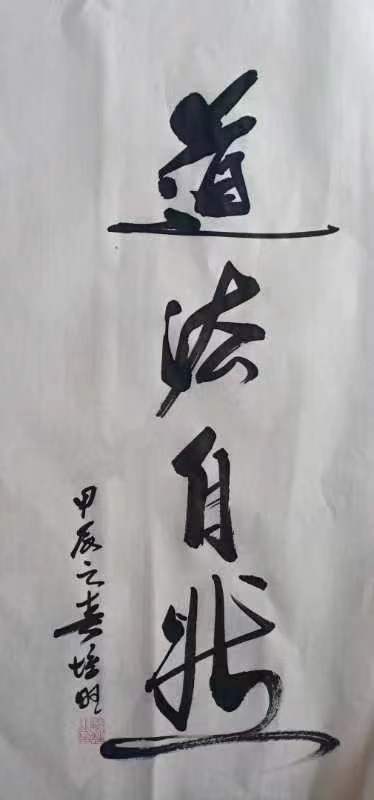 道法自然
甲辰之春培旺